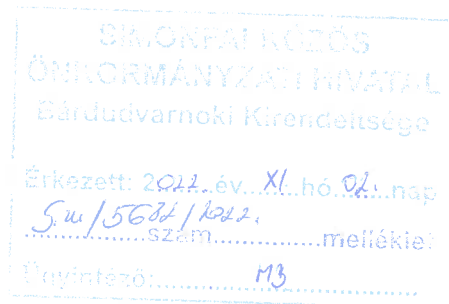 SIMONFAI KÖZÖS
ÖNKORMÁNYZATI HIVATAL
Bárdudvarnoki Kirendeltsége
Érkezett: 2022. év XI. hó 02. nap
szám melléklet
Ügyintéző: MB